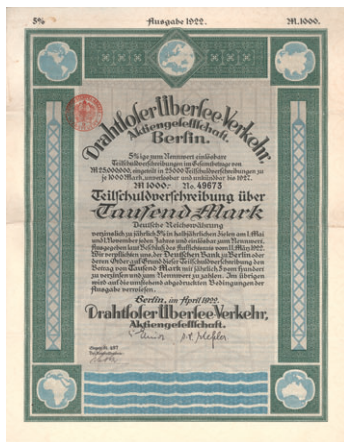 5% Ausgabe 1922. M.1000.
Drahtloser Übersee-Verkehr,
Aktiengesellschaft.
Berlin.
5%ige zum Nennwert einlösbare
Teilschuldverschreibungen im Gesamtbetrage von
M 25000000, eingeteilt in 25000 Teilschuldverschreibungen zu
je 1000 Mark, unverlosbar und unkündbar bis 1927.
M 1000.- No. 49673
Teilschuldverschreibung über
Tausend Mark
Deutsche Reichswährung
verzinslich zu jährlich 5% in halbjährlichen Zielen am 1. Mai
und 1. November jeden Jahres und einlösbar zum Nennwert.
Ausgegeben laut Beschluß des Aufsichtsrats vom 11. März 1922.
Wir verpflichten uns, der Deutschen Bank zu Berlin oder
deren Order auf Grund dieser Teilschuldverschreibung den
Betrag von Tausend Mark mit jährlich 5 vom Hundert
zu verzinsen und zum Nennwert zu zahlen. Im übrigen
wird auf die umstehend abgedruckten Bedingungen der
Ausgabe verwiesen.
Berlin, im April 1922.
Drahtloser Übersee-Verkehr,
Aktiengesellschaft.